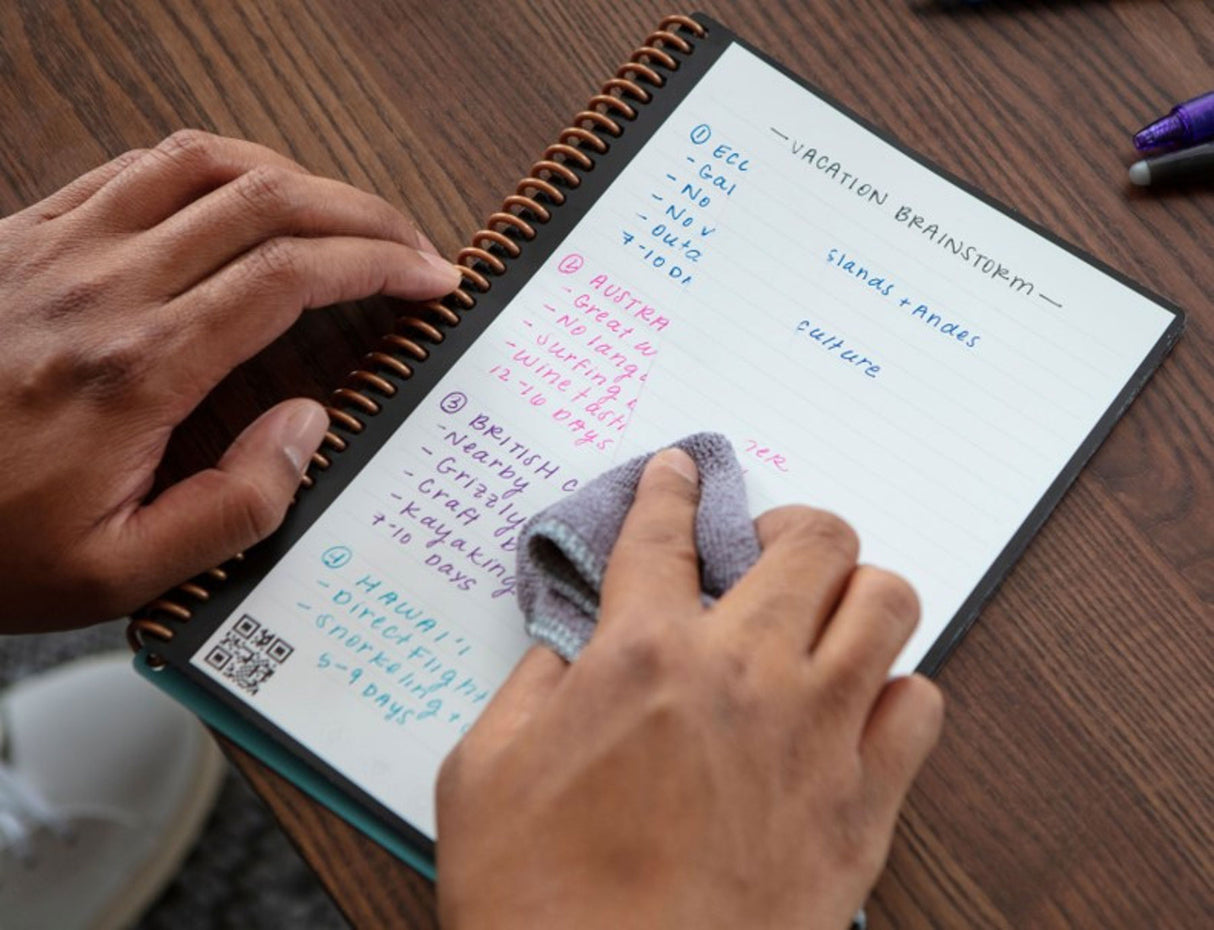 — VACATION BRAINSTORM —
① ECU
- Gal slands + Andes
- No
- No v culture
- Outa
7-10 DA
② AUSTRA
- Great w
- No langu
- Surfing
- Wine tasti
12-16 DAYS
③ BRITISH C
- Nearby
- Grizzly
- Craft b
- Kayaking
7-10 Days
④ HAWAI'I
- Direct Flight
- Snorkeling +
5-9 DAYS